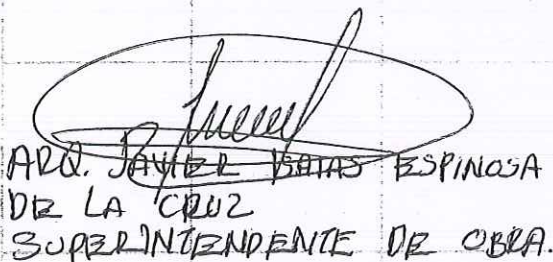 ARQ. JAVIER ISAIAS ESPINOSA
DE LA CRUZ
SUPERINTENDENTE DE OBRA.